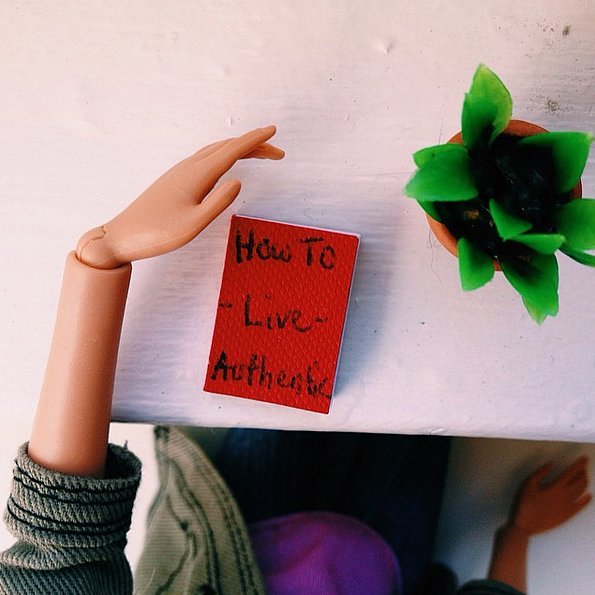 How To
- Live -
Authentic